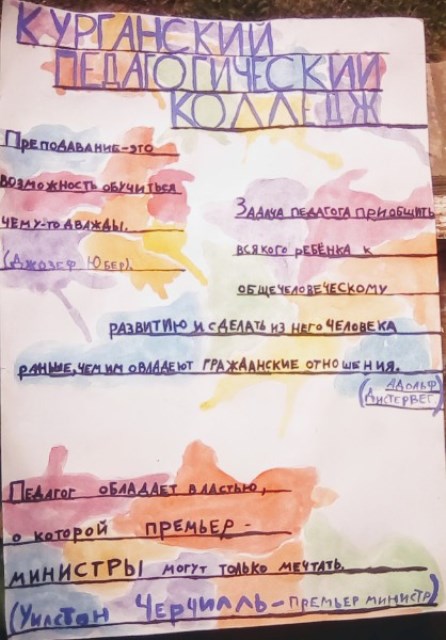 КУРГАНСКИЙ
ПЕДАГОГИЧЕСКИЙ
КОЛЛЕДЖ
ПРЕПОДАВАНИЕ-ЭТО
ВОЗМОЖНОСТЬ ОБУЧИТЬСЯ
ЧЕМУ-ТО ДВАЖДЫ.
(ДЖОЗЕФ ЮБЕР).
ЗАДАЧА ПЕДАГОГА ПРИОБЩИТЬ
ВСЯКОГО РЕБЁНКА К
ОБЩЕЧЕЛОВЕЧЕСКОМУ
РАЗВИТИЮ И СДЕЛАТЬ ИЗ НЕГО ЧЕЛОВЕКА
РАНЬШЕ, ЧЕМ ИМ ОВЛАДЕЮТ ГРАЖДАНСКИЕ ОТНОШЕНИЯ.
(АДОЛЬФ
ДИСТЕРВЕГ)
ПЕДАГОГ ОБЛАДАЕТ ВЛАСТЬЮ,
О КОТОРОЙ ПРЕМЬЕР-
МИНИСТРЫ МОГУТ ТОЛЬКО МЕЧТАТЬ.
(УИЛСТОН ЧЕРЧИЛЛЬ-ПРЕМЬЕР МИНИСТР)